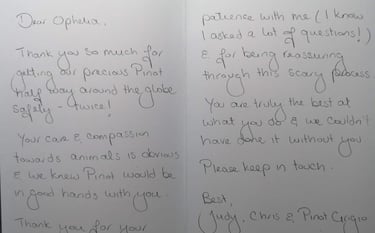 Dear Ophelia,
Thank you so much for
getting our precious Pinot
half way around the globe
safely - twice!
Your care & compassion
towards animals is obvious
& we knew Pinot would be
in good hands with you.
Thank you for your
patience with me (I know
I asked a lot of questions!)
& for being reassuring
through this scary process.
You are truly the best at
what you do & we couldn't
have done it without you
Please keep in touch.
Best,
Judy, Chris & Pinot Grigio